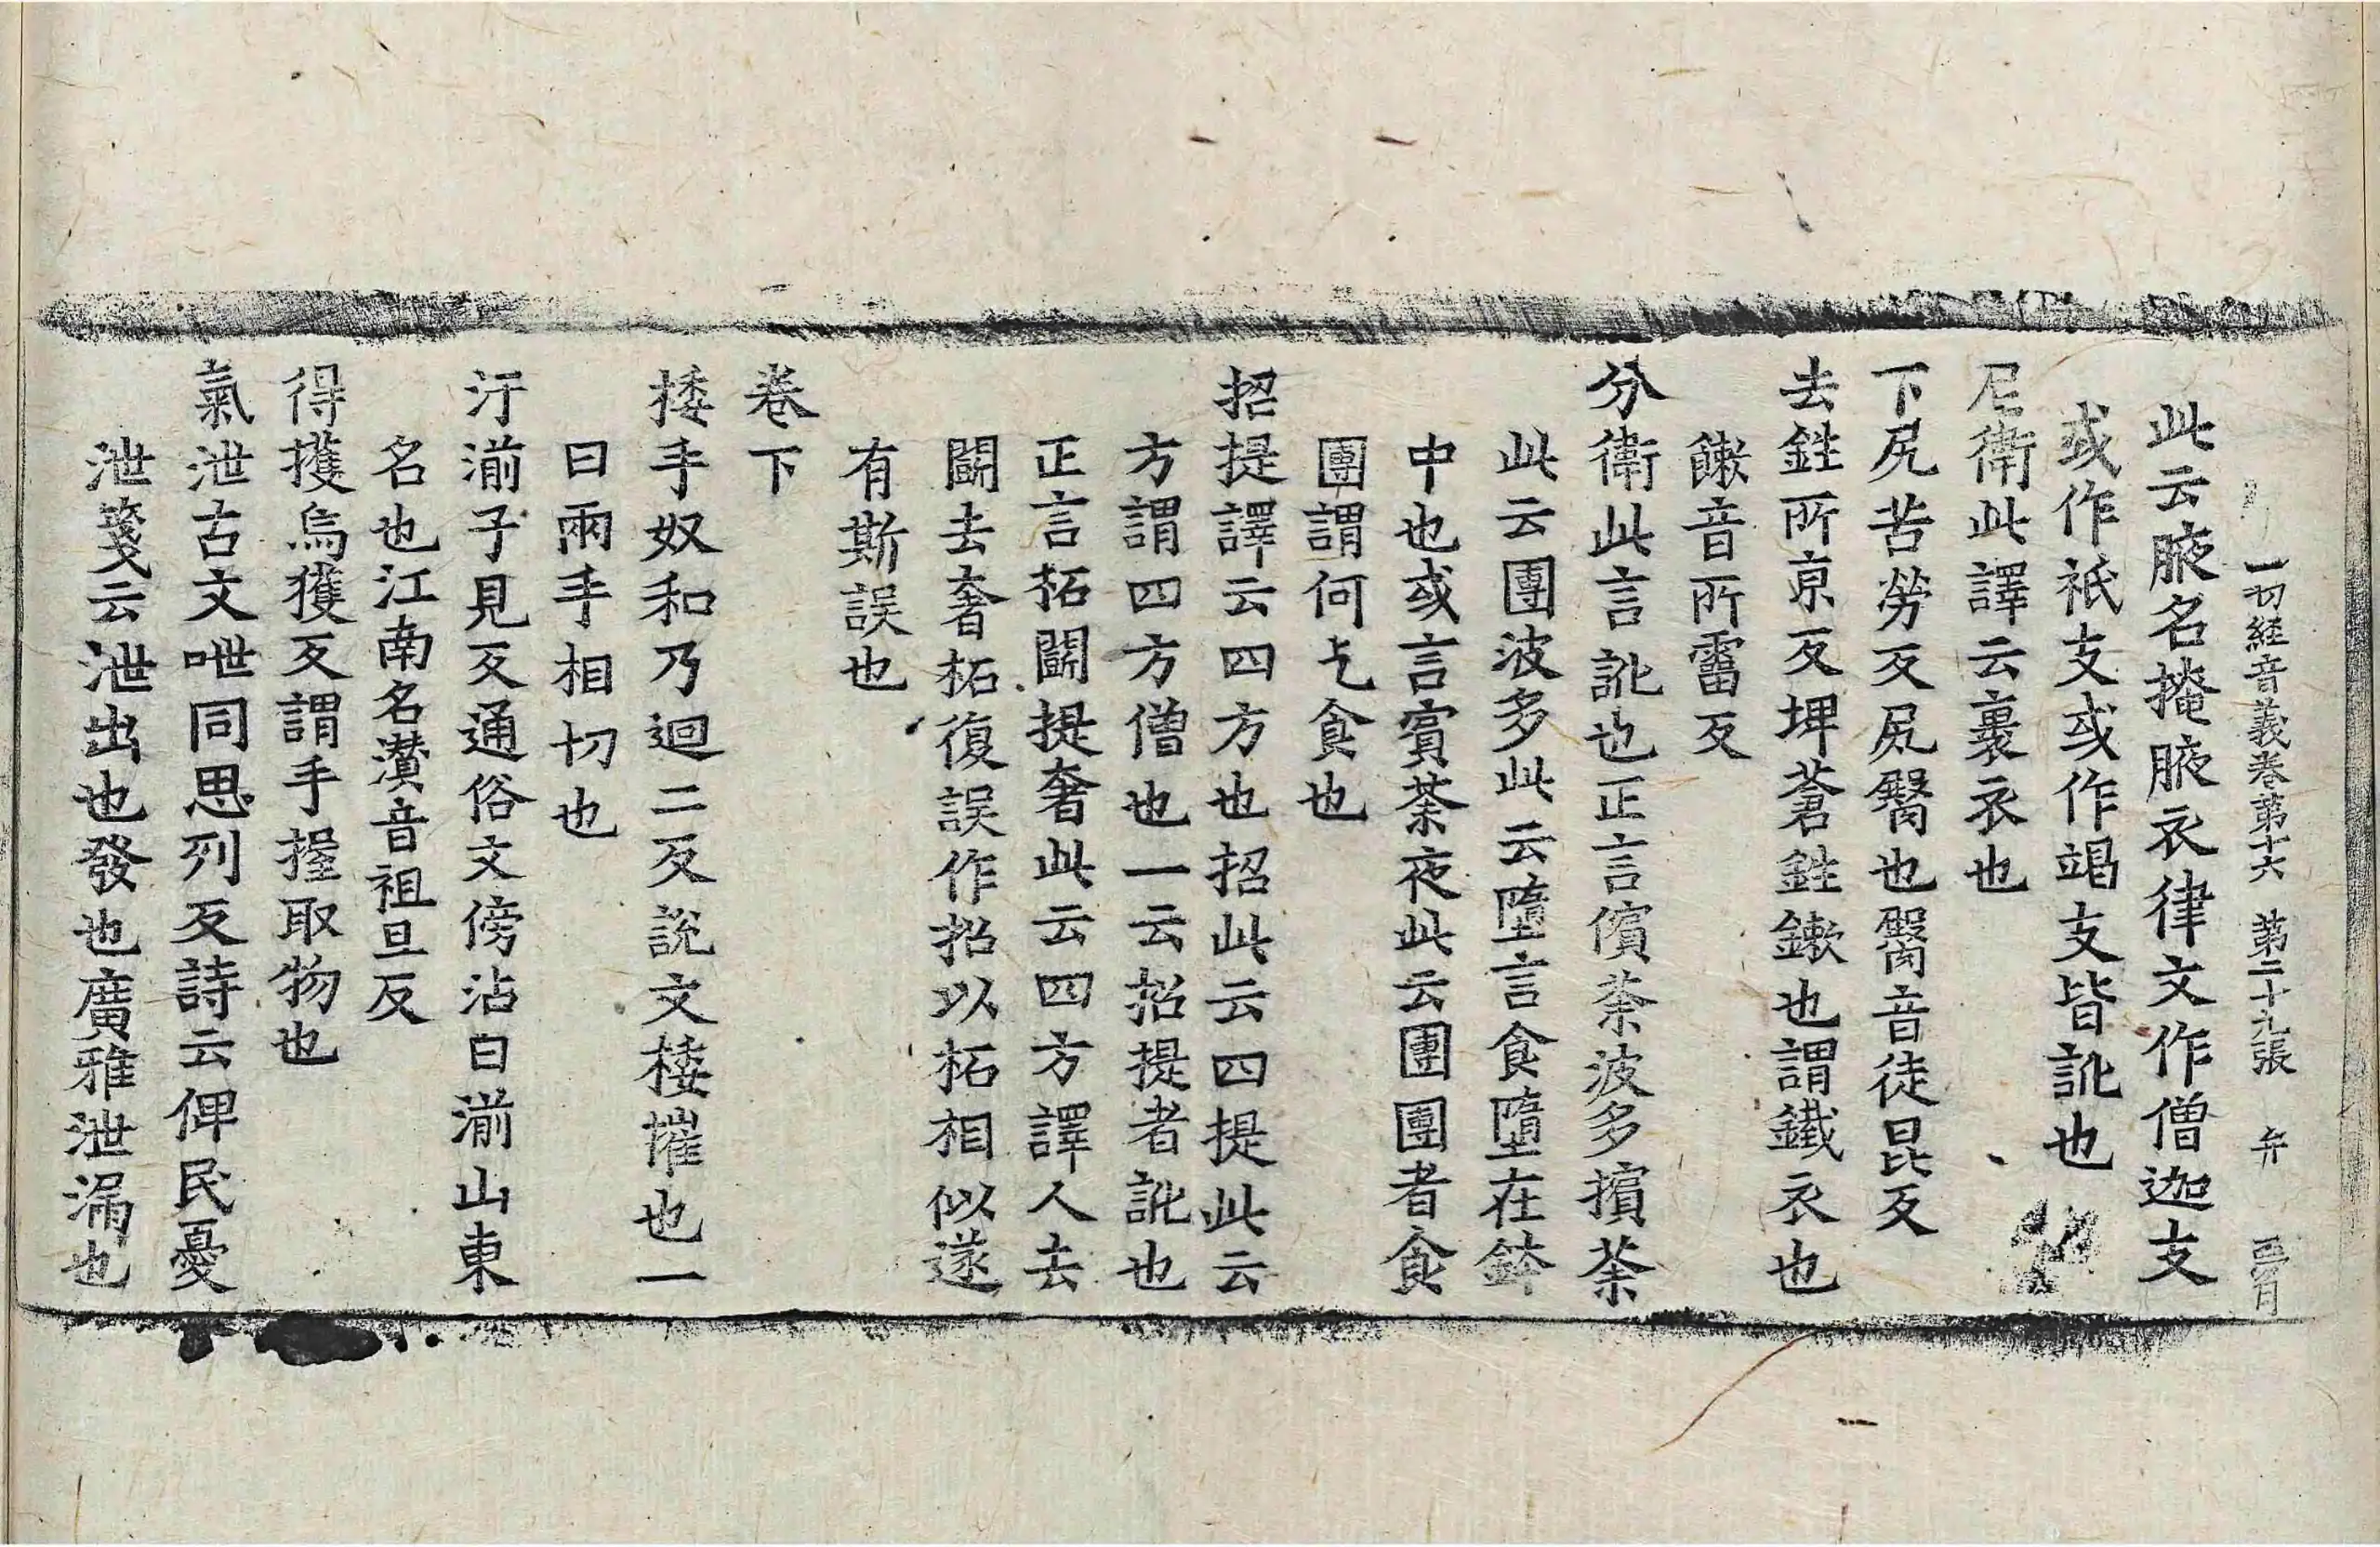 一切経音義卷第十六 第二十九張 弁
此云腋名掩腋衣律文作僧迦支
或作祇支或作竭支皆訛也
尼衛此譯云裹衣也
下尻苦勞反尻臋也臋音徒昆反
去鉎所京反埤蒼鉎鏉也謂鐵衣也
鏉音所霤反
分衛此言訛也正言儐荼波多擯荼
此云團波多此云墮言食墮在鉢
中也或言賓荼夜此云團團者食
團謂何乞食也
招提譯云四方也招此云四提此云
方謂四方僧也一云招提者訛也
正言柘鬭提奢此云四方譯人去
鬭去奢柘復誤作招以柘相似遂
有斯誤也
卷下
捼手奴和乃迴二反說文捼摧也一
曰兩手相切也
汙湔子見反通俗文傍沾曰湔山東
名也江南名灒音祖旦反
得擭烏獲反謂手握取物也
氣泄古文呭同思列反詩云俾民憂
泄箋云泄出也發也廣雅泄漏也